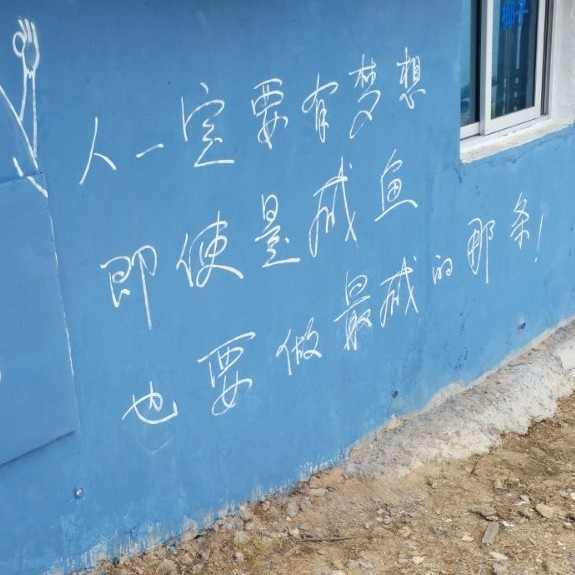 人一定要有梦想
即使是咸鱼
也要做最咸的那条!